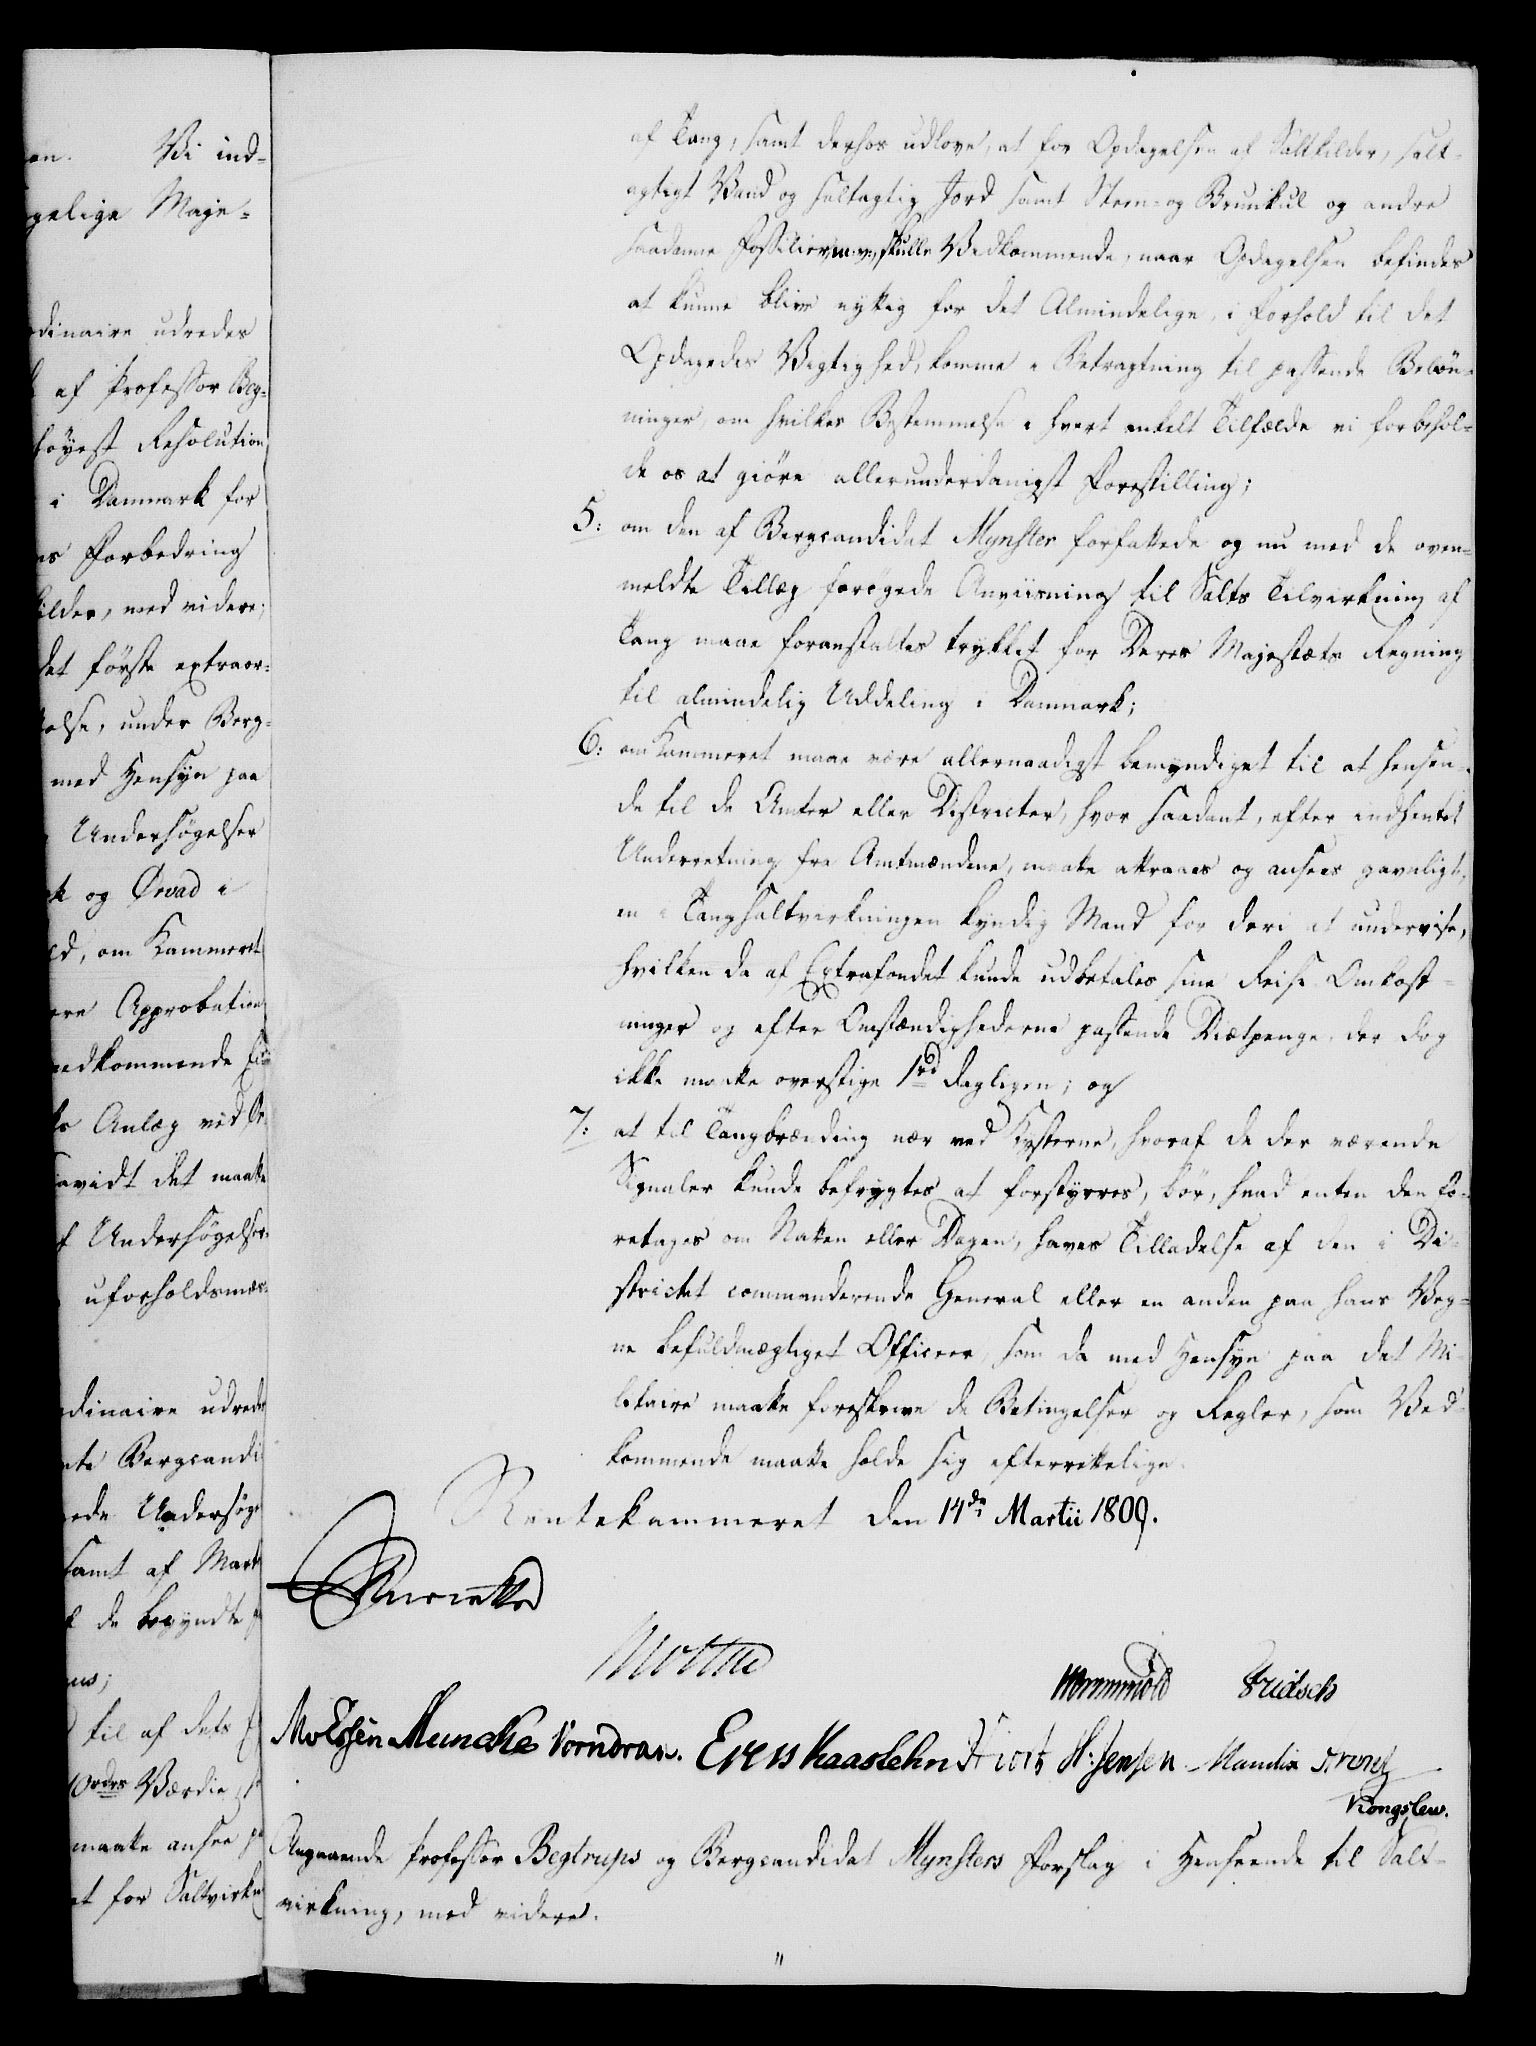 en. Vi ind-
gelige Maje-
rdinaire udredes
af Professor Beg-
höyest Resolution
i Danmark for
ns Forbedring
kilder, med videre;
det förste extraor-
else, under Berg-
med Hensyn paa
Undersøgelser
k og Ørvad i
ld, om Kammeret
ere Approbation
vedkommende
Anlæg ved
savidt det maatte
f Undersøgelser
uforholdsmæs-
dinaire udredes
Bergcandi
ede Undersøge
samt af Mart
de begyndte
til af dets
Værdie
maatte ansee
et for Saltvirkn
af Tang, samt derhos udlove, at for Opdagelsen af Saltkilder, salt-
agtigt Vand og saltagtig Jord samt Steen- og Bruunkul og andre
saadanne Fossilier m: v:, skulle Vedkommende, naar Opdagelsen befindes
at kunne blive nyttig for det Almindelige, i Forhold til det
Opdagedes Vigtighed, komme i Betragtning til passende Belön-
ninger, om hvilkes Bestemmelse i hvert enkelt Tilfælde vi forbehol-
de os at giöre allerunderdanigst Forestilling;
5: om den af Bergcandidat Mynster forfattede og nu med de oven-
meldte Tillæg forøgede Anviisning til Salts Tilvirkning af
Tang maae foranstaltes trykket for Deres Majestæts Regning
til almindelig Uddeling i Danmark;
6: om Kammeret maae være allernaadigst bemyndiget til at hensen-
de til de Amter eller Districter, hvor saadant, efter indhentet
Underretning fra Amtmændene, maatte attraaes og ansees gavnligt,
en i Tangsaltvirkningen kyndig Mand for deri at undervise,
hvilken da af Extrafondet kunde udbetales sine Reise Omkost-
ninger og efter Omstændighederne passende Diætpenge, der dog
ikke maatte overstige 1 rd dagligen; og
7: at til Tangbrænding nær ved Kysterne, hvoraf de der værende
Signaler kunde befrygtes at forstyrres, bör, hvad enten den fo-
retages om Natten eller Dagen, haves Tilladelse af den i Di-
strictet commanderende General eller en anden paa hans Veg-
ne befuldmægtiget Officeer, som da med Hensyn paa det Mi-
litaire maatte foreskrive de Betingelser og Regler, som Ved-
kommende maatte holde sig efterrettelige.
Rentekammeret den 14de Martii 1809.
Reventlow
Wormskiold Fridsch
Meincke Vorndran. Evers Kaaslehn Hiort H: Jensen Mandix
Kongslew.
Angaaende Professor Begtrups og Bergcandidat Mynsters Forslag i Henseende til Salt-
virkning, med videre.